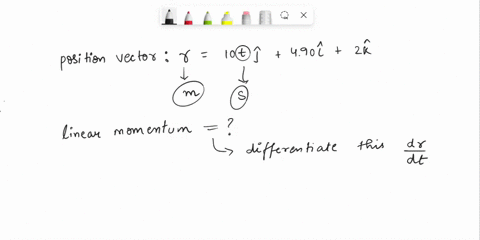 position vector : r = 10 t ĵ + 4.90 î + 2 k̂
m s
linear momentum = ?
differentiate this dr/dt